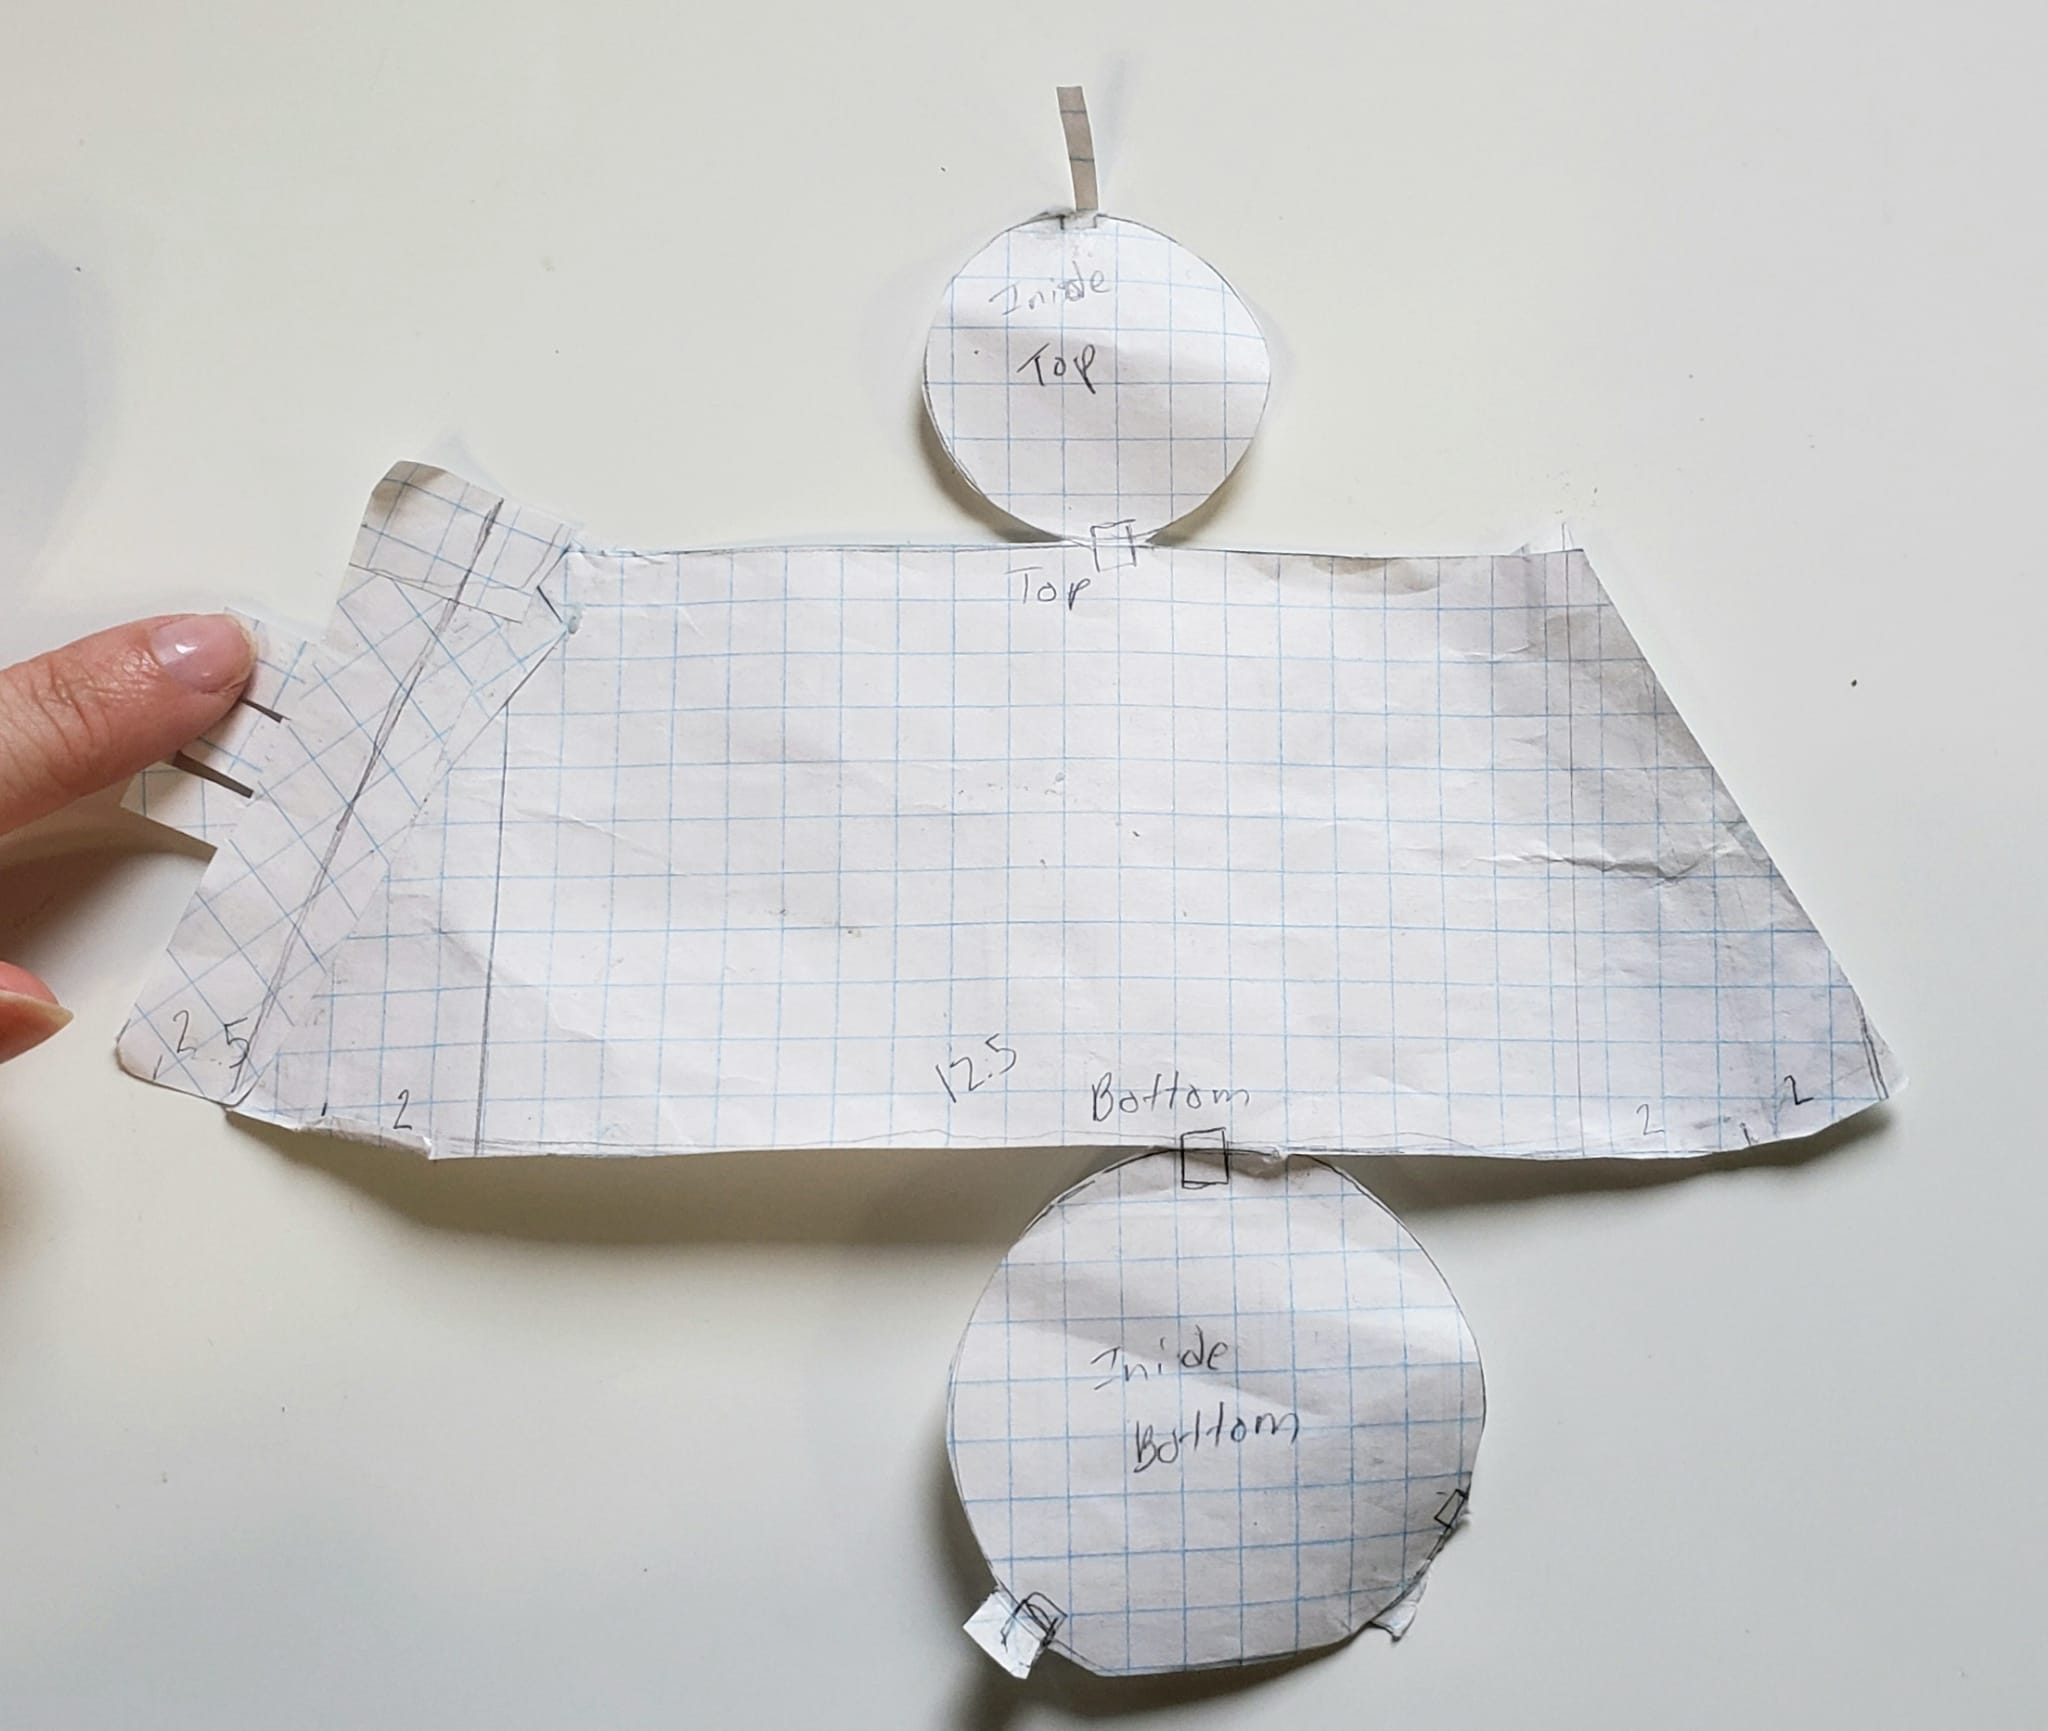 Iniside
Top
Top
2.5
2
12.5
Bottom
2
2
Iniide
Bottom